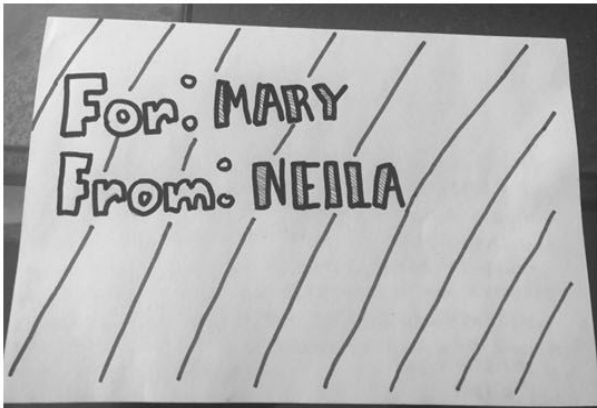 For: MARY
From: NEILA